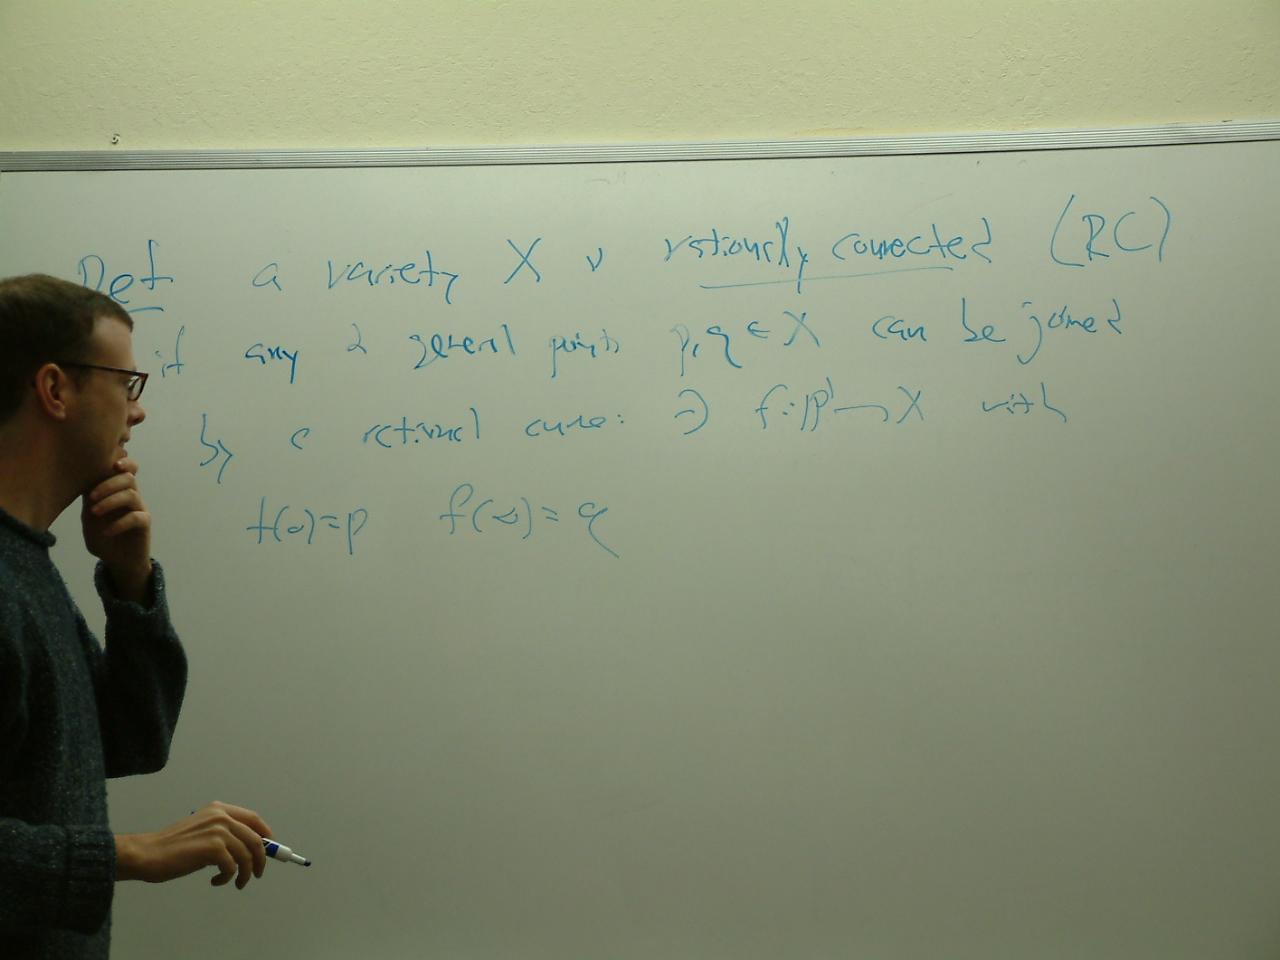 Def a variety X is rationally connected (RC)
if any 2 general points p, q ∈ X can be joined
by a rational curve: ∃ f: ℙ¹ → X with
f(0)=p f(∞)=q